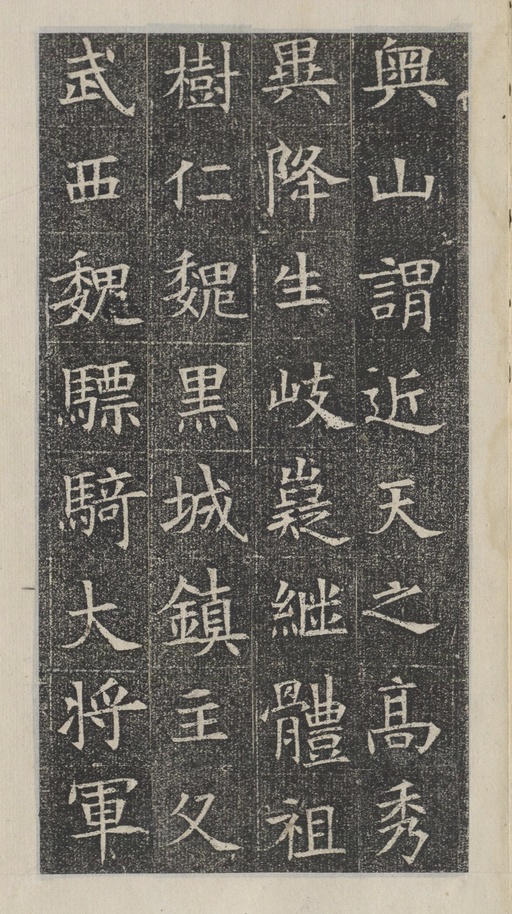 奧山謂近天之高秀
異降生岐嶷繼體祖
樹仁魏黑城鎮主父
武西魏驃騎大將軍